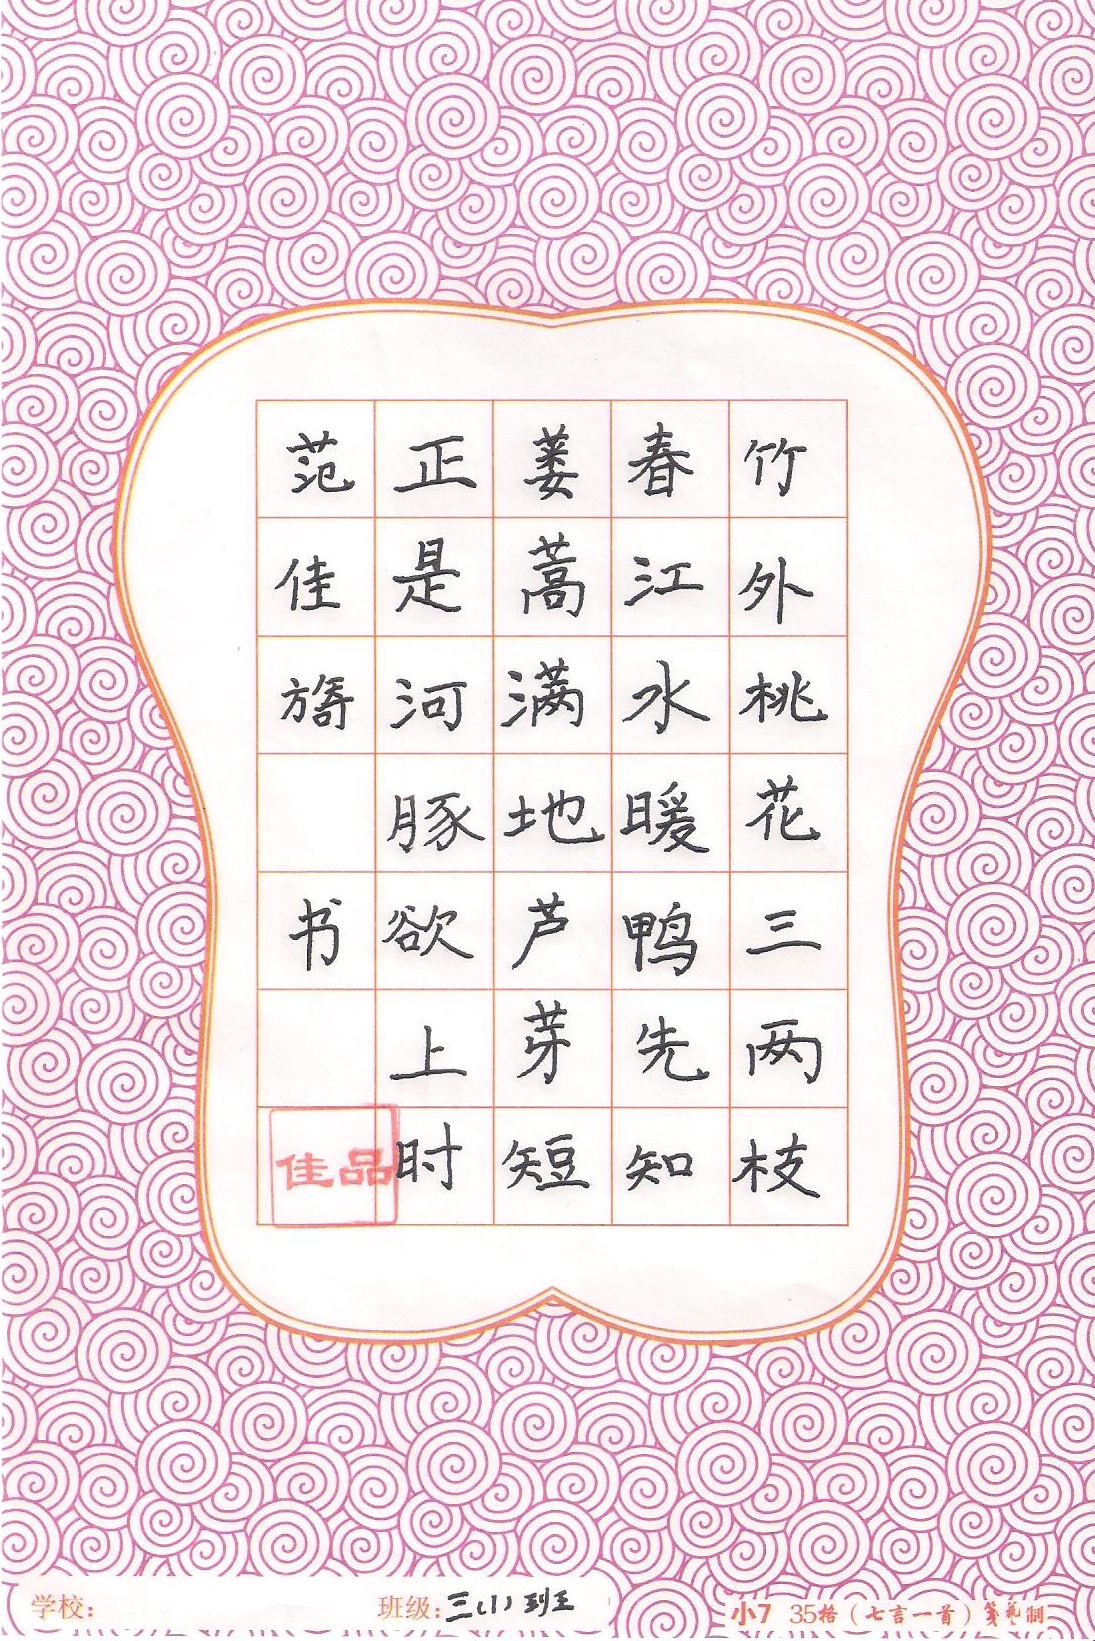 竹外桃花三两枝
春江水暖鸭先知
蒌蒿满地芦芽短
正是河豚欲上时
范佳旖 书
佳品
学校:
班级:三(1)班
小7 35格(七言一首)笺艺制